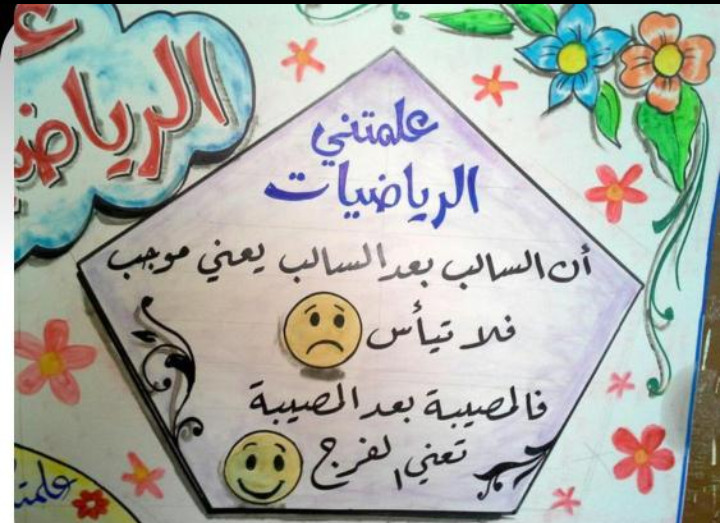 الرياضي
علمتني
الرياضيات
أن السالب بعد السالب يعني موجب
فلا تيأس
فالمصيبة بعد المصيبة
تعني الفرج
علمت